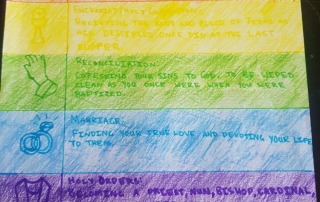 EUCHARIST/HOLY COMMUNION:
RECEIVING THE BODY AND BLOOD OF JESUS AS
HIS DISCIPLES ONCE DID AT THE LAST
SUPPER.
RECONCILIATION:
CONFESSING YOUR SINS TO GOD, TO BE WIPED
CLEAN AS YOU ONCE WERE WHEN YOU WERE
BAPTIZED.
MARRIAGE:
FINDING YOUR TRUE LOVE AND DEVOTING YOUR LIFE
TO THEM.
HOLY ORDERS:
BECOMING A PRIEST, NUN, BISHOP, CARDINAL,